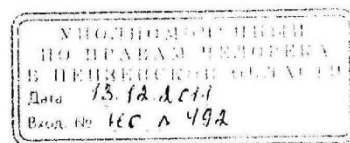 УПОЛНОМОЧЕННЫЙ
ПО ПРАВАМ ЧЕЛОВЕКА
В ПЕНЗЕНСКОЙ ОБЛАСТИ
Дата 13.12.2011
Вход. № 492